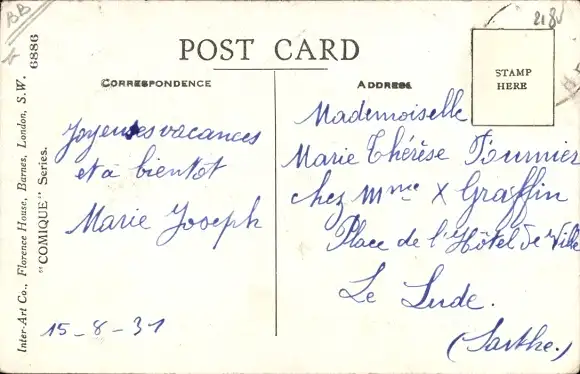 BB
2180
POST CARD
CORRESPONDENCE
ADDRESS
STAMP
HERE
Joyeuses vacances
et à bientôt
Marie Joseph
15-8-31
Mademoiselle
Marie Thérèse Fournier
chez Mme X Graffin
Place de l'Hôtel de Ville
Le Lude.
(Sarthe.)
Inter-Art Co., Florence House, Barnes, London, S.W.
"COMIQUE" Series.
6886